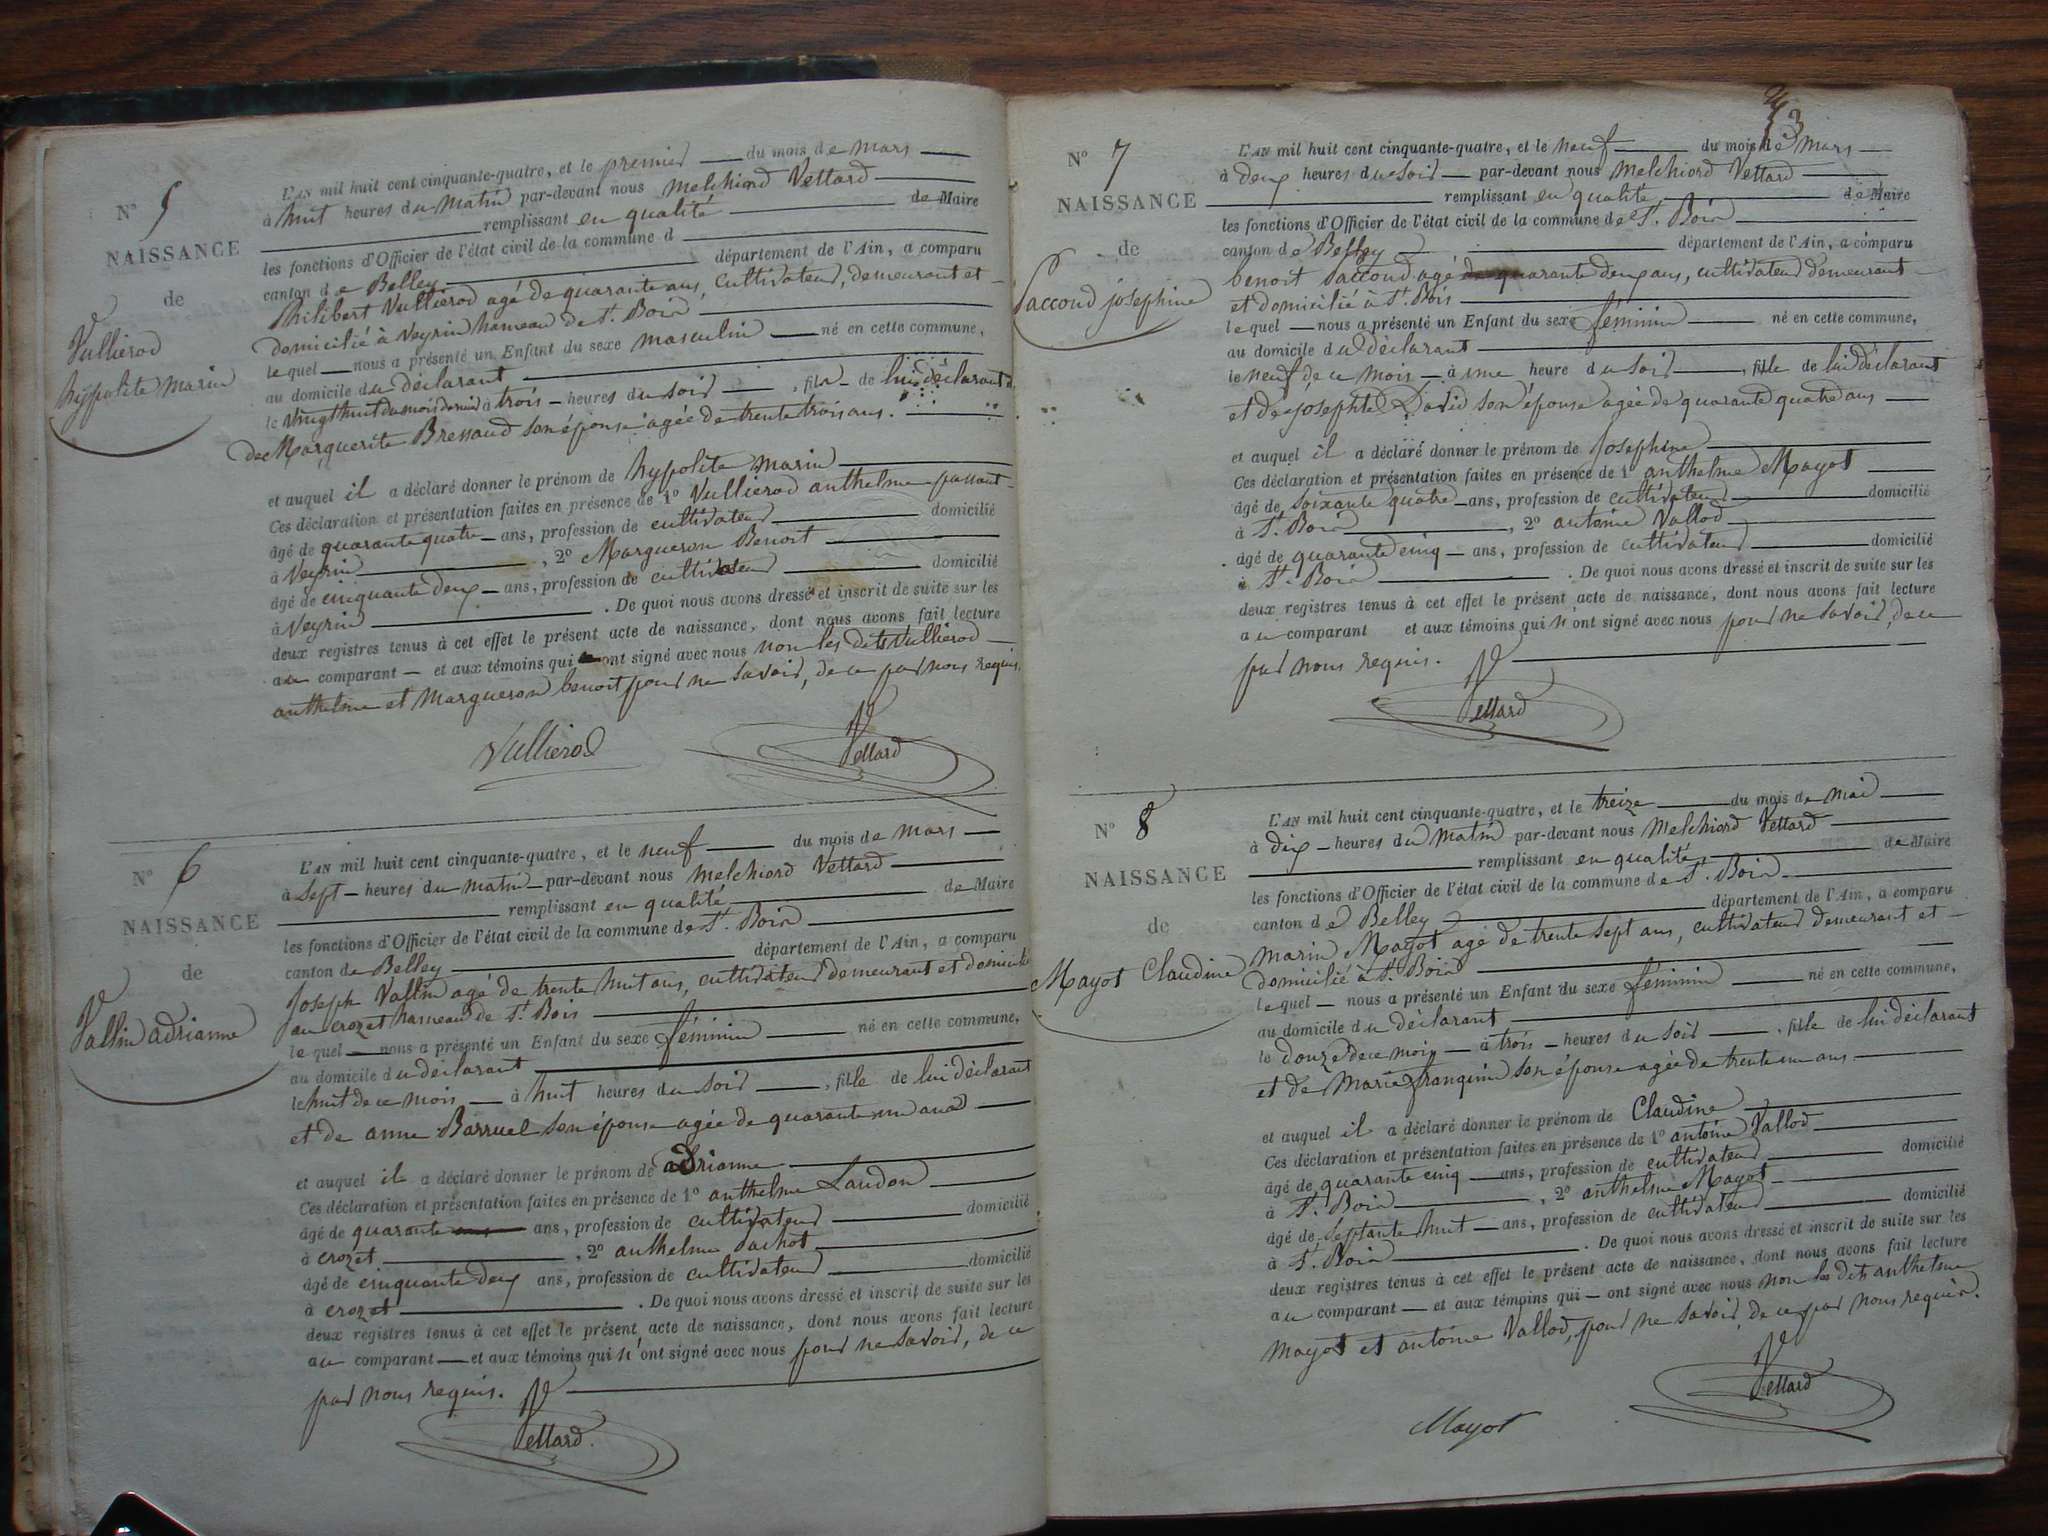 N° 5
NAISSANCE
de
Vullierod
hypolite marin
L'AN mil huit cent cinquante-quatre, et le premier du mois de mars
à huit heures du matin par-devant nous Melchiord Vettard
remplissant en qualité de Maire
les fonctions d'Officier de l'état civil de la commune d
canton de Belley département de l'Ain, a comparu
Philibert Vullierod agé de quarante ans, cultivateur, demeurant et
domicilié à Veyrin hameau de St. Bois
lequel nous a présenté un Enfant du sexe masculin né en cette commune,
au domicile du déclarant
le vingt huit du mois dernier à trois heures du soir, fils de lui déclarant
de Marguerite Bressaud son épouse agée de trente trois ans.
et auquel il a déclaré donner le prénom de hypolite marin
Ces déclaration et présentation faites en présence de 1° Vullierod anthelme
âgé de quarante quatre ans, profession de cultivateur domicilié
à Veyrin, 2° Margueron Benoit
âgé de cinquante deux ans, profession de cultivateur domicilié
à Veyrin. De quoi nous avons dressé et inscrit de suite sur les
deux registres tenus à cet effet le présent acte de naissance, dont nous avons fait lecture
au comparant et aux témoins qui ont signé avec nous non les dits Vullierod
anthelme et Margueron benoit pour ne savoir, de ce par nous requis.
Vullierod
Vettard
N° 6
NAISSANCE
de
Vallin adrianne
L'AN mil huit cent cinquante-quatre, et le neuf du mois de mars
à sept heures du matin par-devant nous Melchiord Vettard
remplissant en qualité de Maire
les fonctions d'Officier de l'état civil de la commune de St. Bois
canton de Belley département de l'Ain, a comparu
Joseph Vallin agé de trente huit ans, cultivateur demeurant et domicilié
au crozet hameau de St. Bois
lequel nous a présenté un Enfant du sexe féminin né en cette commune,
au domicile du déclarant
le huit de ce mois à huit heures du soir, fille de lui déclarant
et de anne Barruel son épouse agée de quarante un ans
et auquel il a déclaré donner le prénom de adrianne
Ces déclaration et présentation faites en présence de 1° anthelme Landon
âgé de quarante ans, profession de cultivateur domicilié
à crozet, 2° anthelme Pachot
âgé de cinquante deux ans, profession de cultivateur domicilié
à crozet. De quoi nous avons dressé et inscrit de suite sur les
deux registres tenus à cet effet le présent acte de naissance, dont nous avons fait lecture
au comparant et aux témoins qui n'ont signé avec nous pour ne savoir, de ce
par nous requis.
Vettard
N° 7
NAISSANCE
de
Paccoud josephine
L'AN mil huit cent cinquante-quatre, et le neuf du mois de mars
à deux heures du soir par-devant nous Melchiord Vettard
remplissant en qualité de Maire
les fonctions d'Officier de l'état civil de la commune de St. Bois
canton de Belley département de l'Ain, a comparu
benoit Paccoud agé de quarante deux ans, cultivateur demeurant
et domicilié à St. Bois
lequel nous a présenté un Enfant du sexe féminin né en cette commune,
au domicile du déclarant
le neuf de ce mois à une heure du soir, fille de lui déclarant
et de josephte David son épouse agée de quarante quatre ans
et auquel il a déclaré donner le prénom de Josephine
Ces déclaration et présentation faites en présence de 1° anthelme Mayot
âgé de soixante quatre ans, profession de cultivateur domicilié
à St. Bois, 2° antoine Vallod
âgé de quarante cinq ans, profession de cultivateur domicilié
à St. Bois. De quoi nous avons dressé et inscrit de suite sur les
deux registres tenus à cet effet le présent acte de naissance, dont nous avons fait lecture
au comparant et aux témoins qui n'ont signé avec nous pour ne savoir, de ce
par nous requis.
Vettard
N° 8
NAISSANCE
de
Mayot Claudine
L'AN mil huit cent cinquante-quatre, et le treize du mois de mai
à dix heures du matin par-devant nous Melchiord Vettard
remplissant en qualité de Maire
les fonctions d'Officier de l'état civil de la commune de St. Bois
canton de Belley département de l'Ain, a comparu
Marin Mayot agé de trente sept ans, cultivateur demeurant et
domicilié à St. Bois
lequel nous a présenté un Enfant du sexe féminin né en cette commune,
au domicile du déclarant
le douze de ce mois à trois heures du soir, fille de lui déclarant
et de Marie franquin son épouse agée de trente un ans
et auquel il a déclaré donner le prénom de Claudine
Ces déclaration et présentation faites en présence de 1° antoine Vallod
âgé de quarante cinq ans, profession de cultivateur domicilié
à St. Bois, 2° anthelme Mayot
âgé de septante huit ans, profession de cultivateur domicilié
à St. Bois. De quoi nous avons dressé et inscrit de suite sur les
deux registres tenus à cet effet le présent acte de naissance, dont nous avons fait lecture
au comparant et aux témoins qui ont signé avec nous non les dits anthelme
Mayot et antoine Vallod, pour ne savoir, de ce par nous requis.
Vettard
Mayot